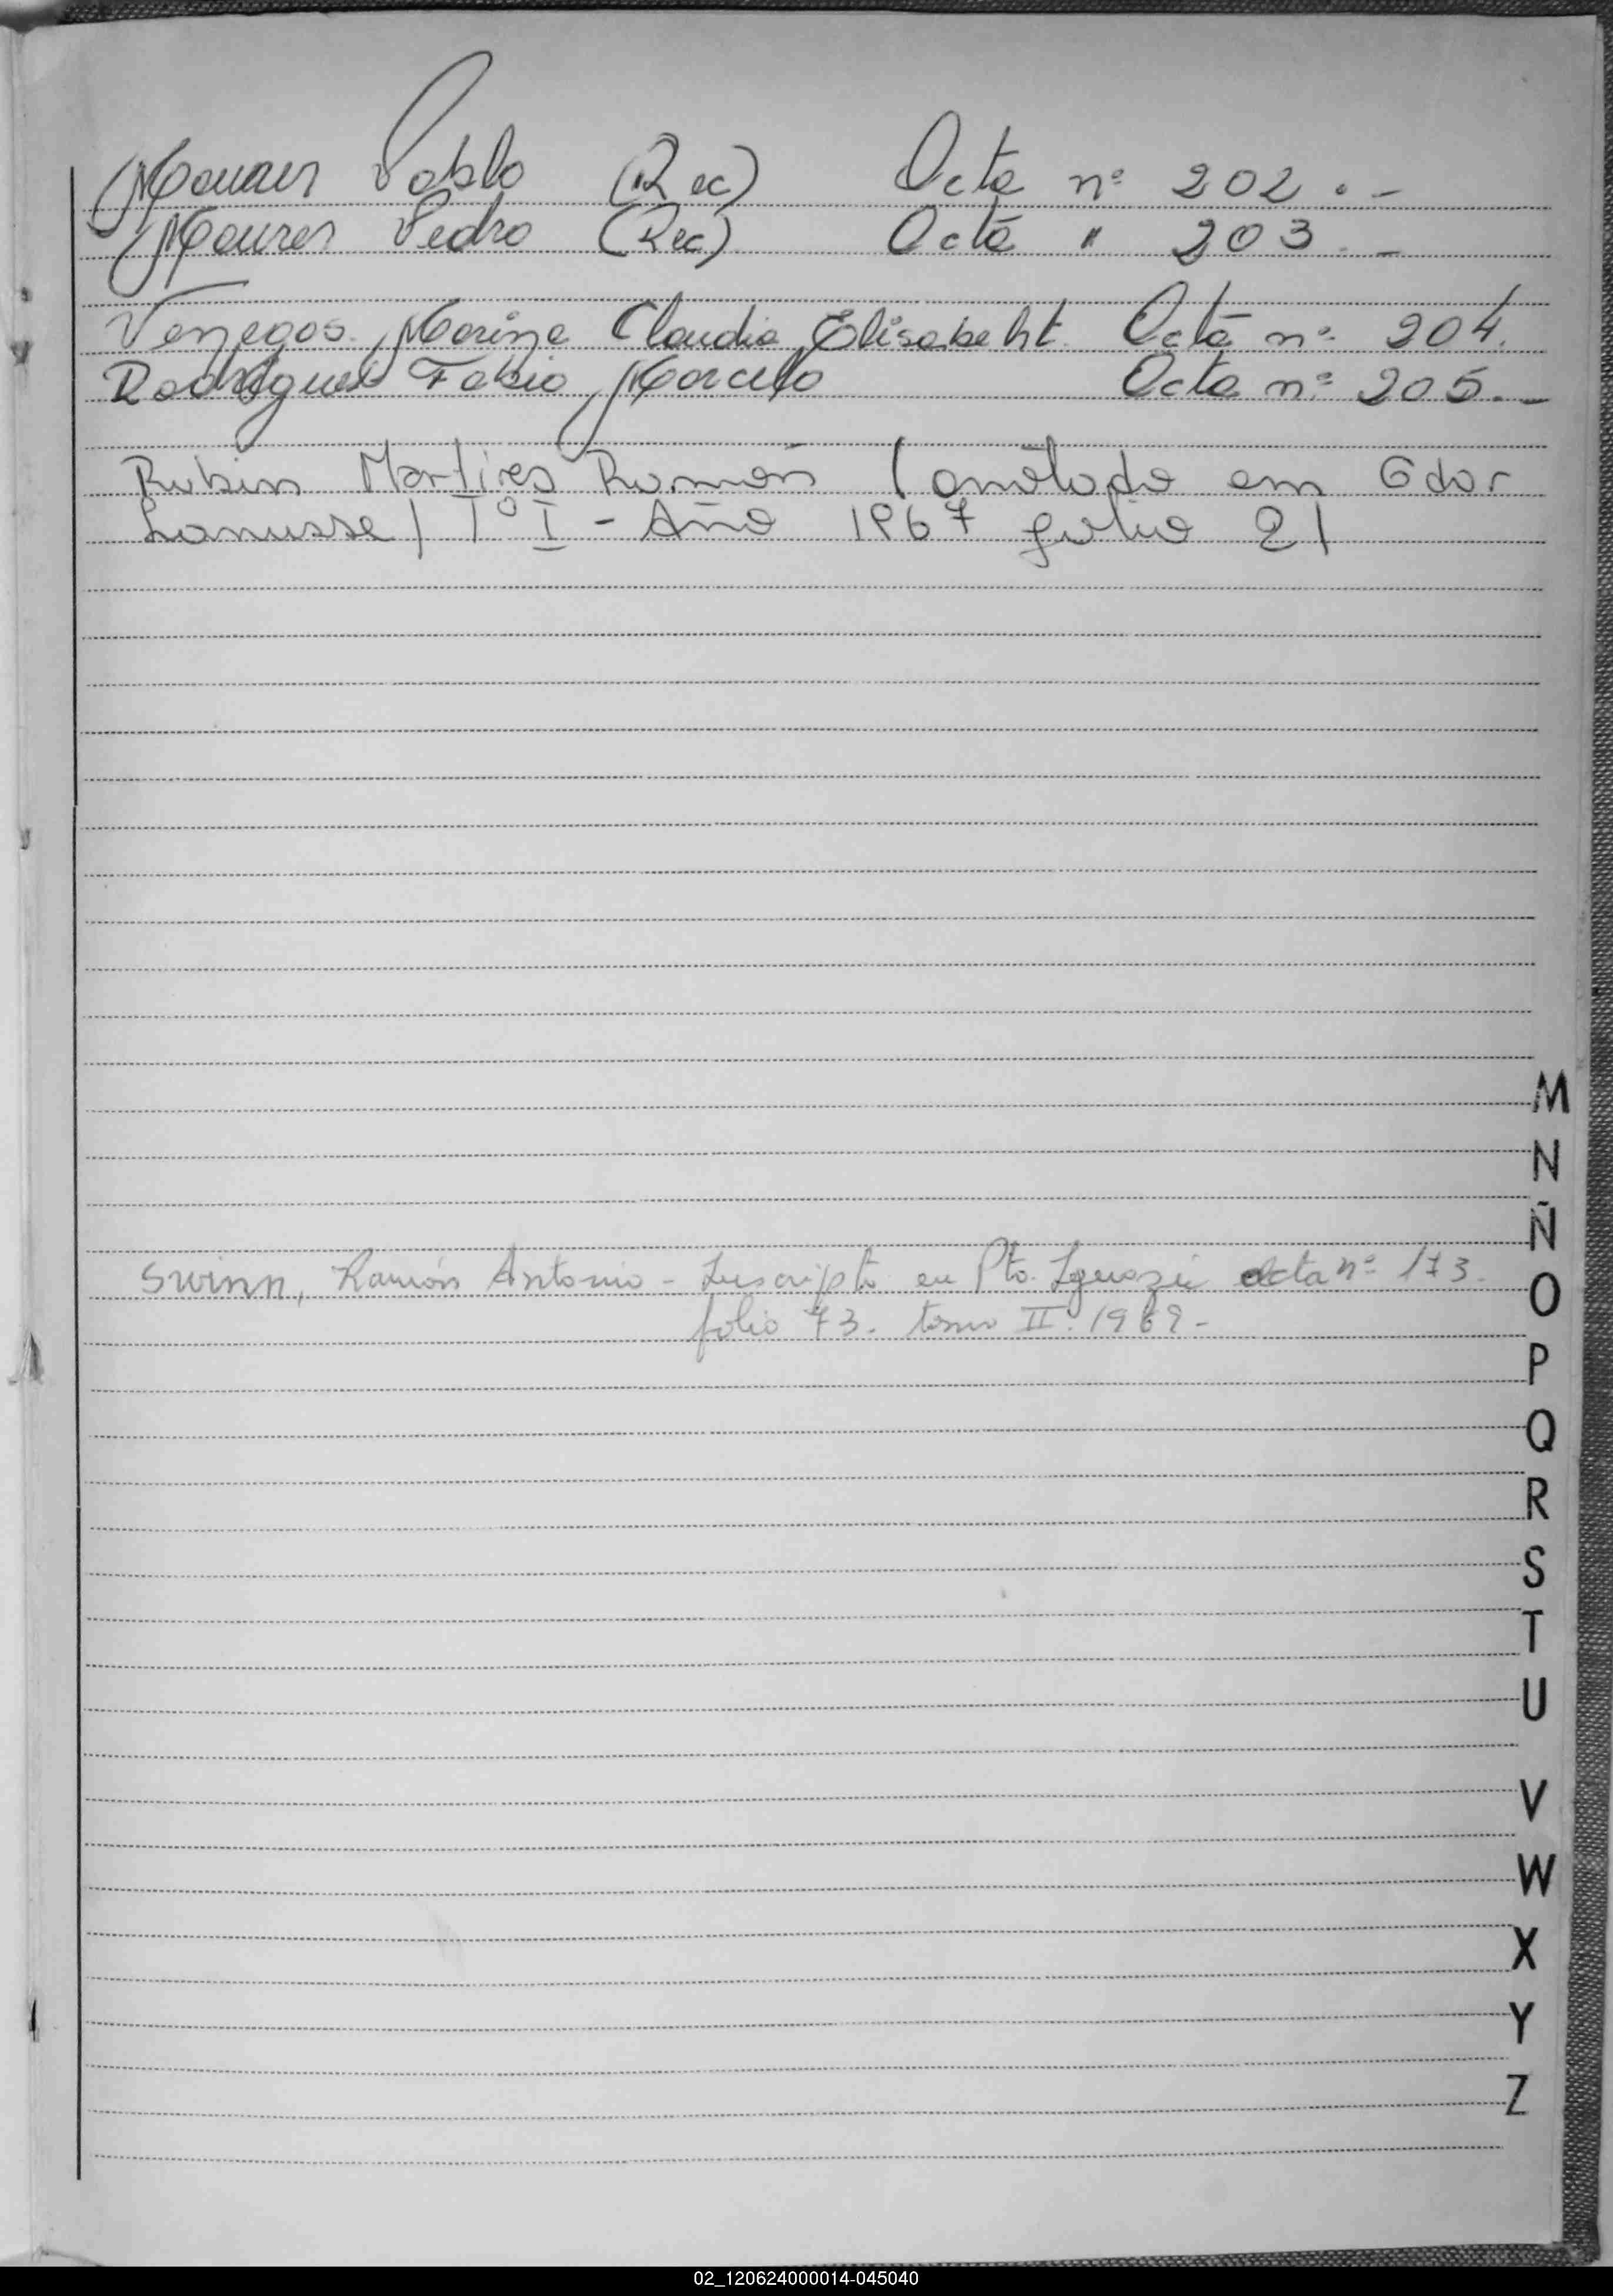 Maurer Pablo (Rec) Acta nº 202.-
Maurer Pedro (Rec) Acta " 203.-
Venegas Marina Claudia Elisabeht Acta nº 204.
Rodriguez Fabio Marcelo Acta nº 205.-
Rubin Martires Ramón (anotado en Gdor
Lanusse) Tº I - Año 1967 Julio 21
Swinn, Ramón Antonio - Inscripto en Pto. Iguazú acta nº 173.
folio 73. tomo II. 1969-
M
N
Ñ
O
P
Q
R
S
T
U
V
W
X
Y
Z
02_120624000014-045040